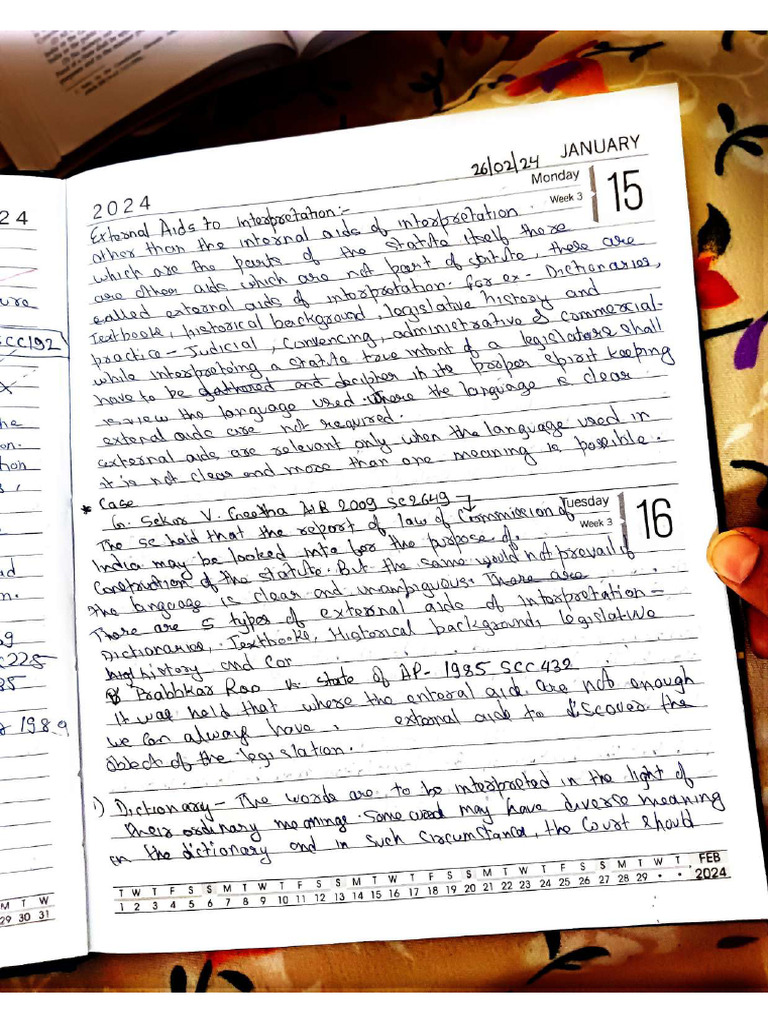 24
ure
SCC192
X
he
on.
tion
s,
d
n.
g
C225
85
1989
M T W
29 30 31
26/02/24 JANUARY
2024
Monday
Week 3
15
External Aids to Interpretation:-
other than the internal aids of interpretation
which are the parts of the statute itself there
are other aids which are not part of statute, these are
called external aids of interpretation. For ex - Dictionaries,
Textbooks, historical background, legislative history and
practice - Judicial, Convencing, administrative & commercial.
while interpreteing a statute true intent of a legislature shall
have to be gathered and decipher in its proper spirit keeping
view the language used. Where the language is clear
external aids are not required.
external aids are relevant only when the language used in
it is not clear and more than one meaning is possible.
* Case
Tuesday
Week 3
16
G. Sekar V. Geetha AIR 2009 SC2649
The SC held that the report of law of Commission of
India may be looked into for the purpose of
Construction of the statute. But the same would not prevail if
the language is clear and unambiguous. There are
There are 5 types of external aids of Interpretation -
Dictionaries, Textbooks, Historical background, legislative
history and Cor
Prabhkar Rao v. state of AP - 1985 SCC 432
It was held that where the enteral aids are not enough
we can always have external aids to discover the
object of the legislation.
i) Dictionary - The words are to be interpreted in the light of
their ordinary meanings. Some word may have diverse meaning
in the dictionary and in such circumstance, the Court should
T W T F S S M T W T F S S M T W T F S S M T W T F S S M T W T FEB
1 2 3 4 5 6 7 8 9 10 11 12 13 14 15 16 17 18 19 20 21 22 23 24 25 26 27 28 29 • • 2024